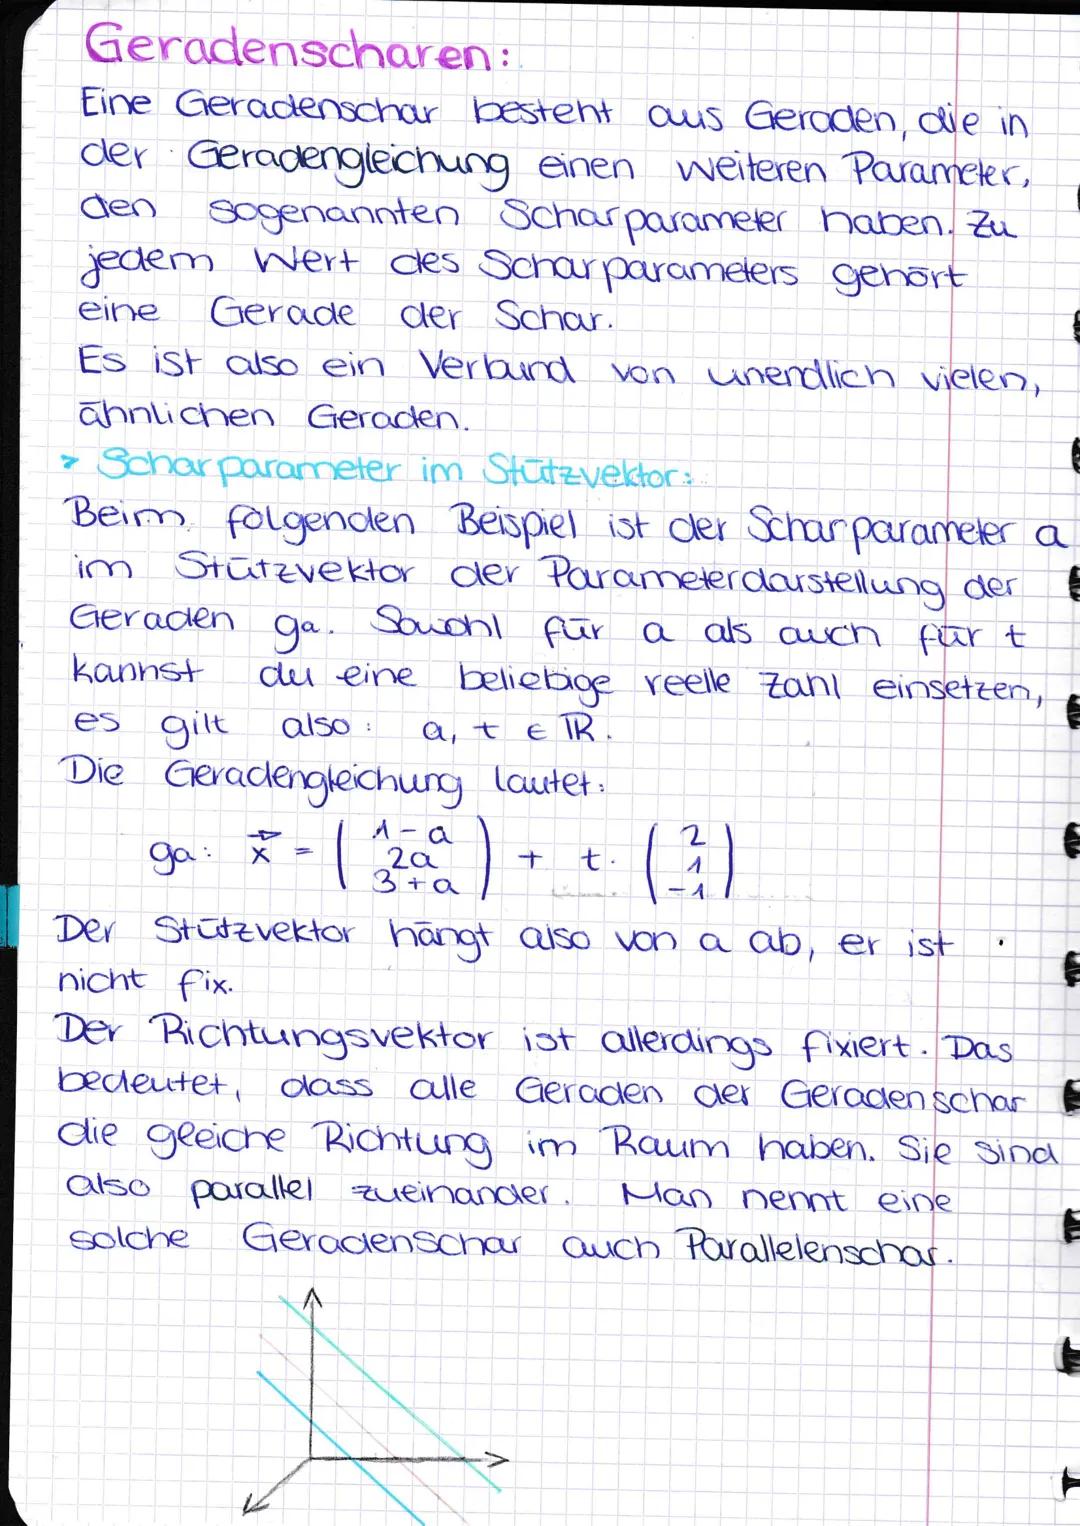 Geradenscharen:
Eine Geradenschar besteht aus Geraden, die in
der Geradengleichung einen weiteren Parameter,
den sogenannten Scharparameter haben. Zu
jedem Wert des Scharparameters gehört
eine Gerade der Schar.
Es ist also ein Verbund von unendlich vielen,
ähnlichen Geraden.
> Scharparameter im Stützvektor:
Beim folgenden Beispiel ist der Scharparameter a
im Stützvektor der Parameterdarstellung der
Geraden ga. Sowohl für a als auch für t
kannst du eine beliebige reelle Zahl einsetzen,
es gilt also: a, t ∈ ℝ.
Die Geradengleichung lautet:
ga: x⃗ = (1-a 2a 3+a) + t · (2 1 -1)
Der Stützvektor hängt also von a ab, er ist
nicht fix.
Der Richtungsvektor ist allerdings fixiert. Das
bedeutet, dass alle Geraden der Geradenschar
die gleiche Richtung im Raum haben. Sie sind
also parallel zueinander. Man nennt eine
solche Geradenschar auch Parallelenschar.